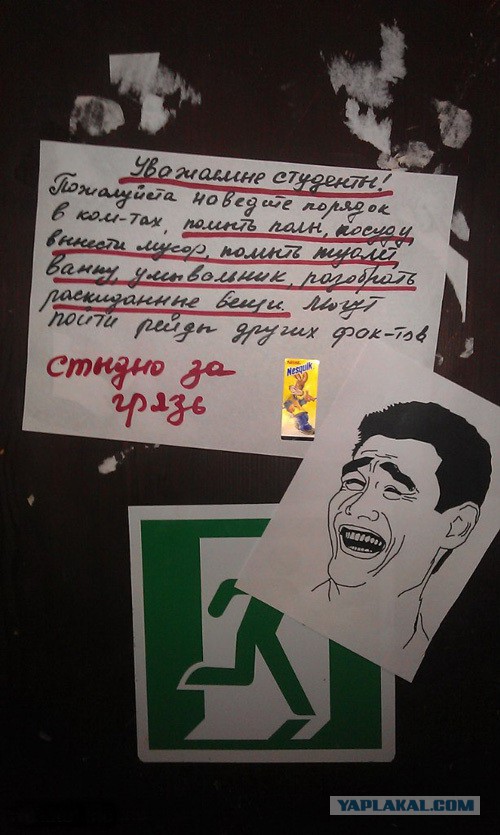 Уважаемые студенты!
Пожалуйста наведите порядок
в ком-тах, помыть полы, посуду
вынести мусор, помыть туалет,
ванну, умывальник, разобрать
раскиданные вещи. Могут
пойти рейды других фак-тов
стыдно за
грязь
Nestlé
Nesquik
YAPLAKAL.COM